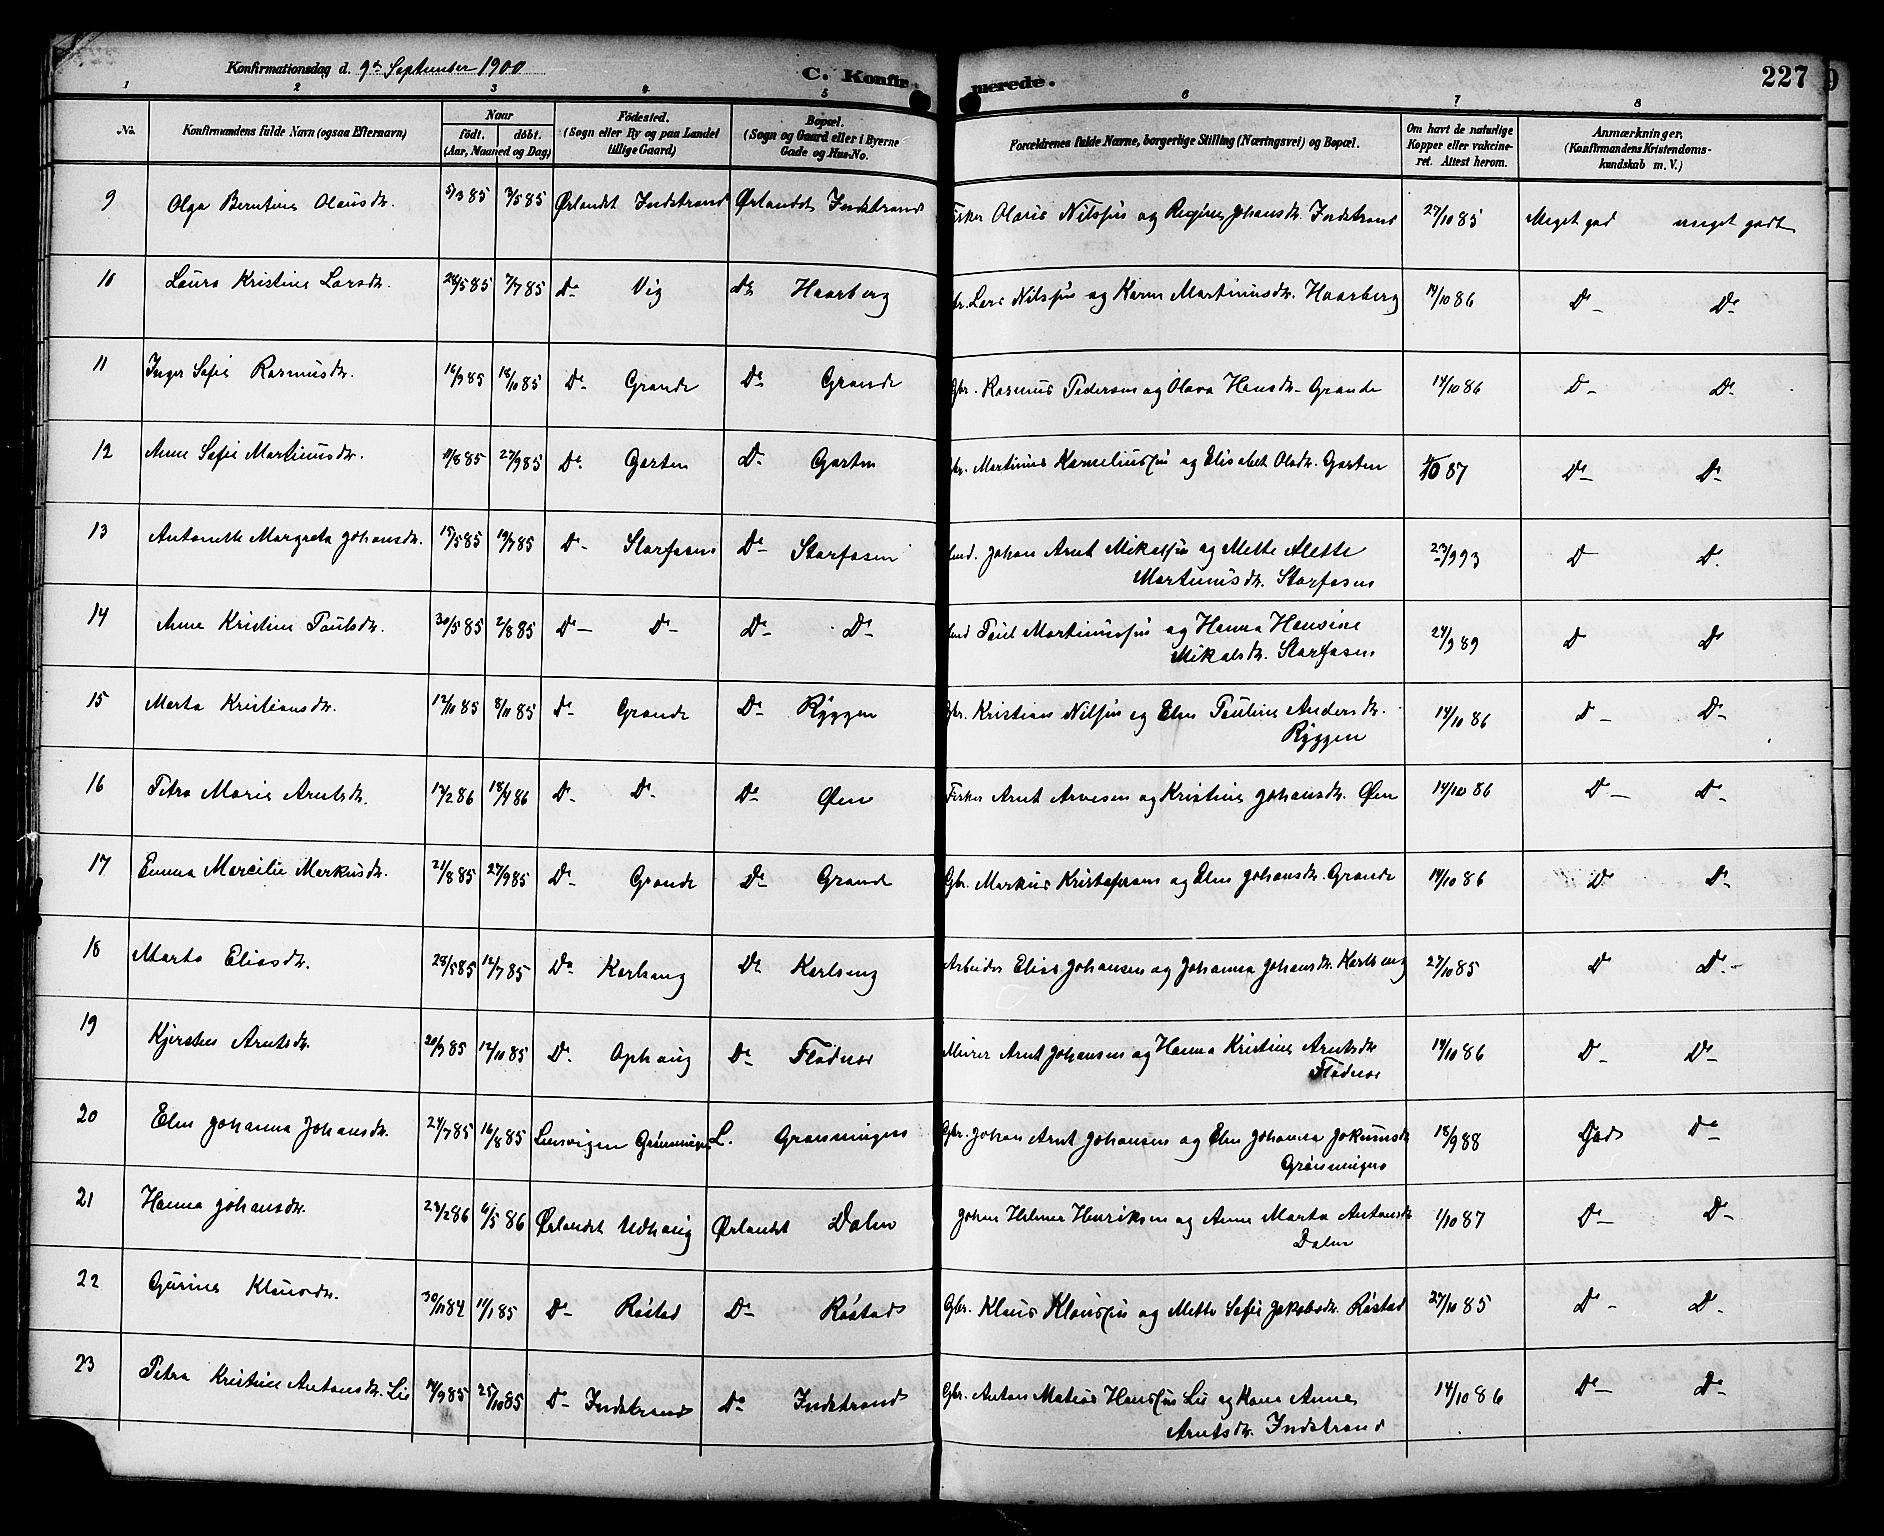 Konfirmationsdag d. 9de September 1900
C. Konfirmerede.
227
1 2 3 4 5 6 7 8
No.
Konfirmandens fulde Navn (ogsaa Efternavn)
Naar
født. døbt.
(Aar, Maaned og Dag)
Fødested.
(Sogn eller By og paa Landet
tillige Gaard)
Bopæl.
(Sogn og Gaard eller i Byerne
Gade og Hus-No.
Forældrenes fulde Navne, borgerlige Stilling (Næringsvei) og Bopæl.
Om havt de naturlige
Kopper eller vakcine-
ret. Attest herom.
Anmærkninger.
(Konfirmandens Kristendoms-
kundskab m. V.)
9 Olga Berntine Olausdr. 5/3 85 3/5 85 Ørlandet Indstrand Ørlandet Indstrand Fisker Olaus Nilssen og Regine Johansdr. Indstrand 27/10 85 Meget god meget godt
10 Laura Kristine Larsdr. 7/7 85 Do Vig Do Haarberg Gbr. Lars Nilssen og Karen Martinusdr. Haarberg 14/10 86 Do Do
11 Inger Sofie Rasmusdr. 16/9 85 18/10 85 Do Grande Do Grande Gbr. Rasmus Pedersen og Olava Hansdr. Grande 14/10 86 Do Do
12 Anne Sofie Martinusdr. 11/8 85 27/9 85 Do Garten Do Garten Gbr. Martinus Korneliussen og Elisabet Olsdr. Garten 87 Do Do
13 Antonette Margreta Johansdr. 15/5 85 19/7 85 Do Storfosen Do Storfosen Johan Arnt Mikalsen og Mette Aletta
Martinusdr. Storfosen 23/9 93 Do Do
14 Anne Kristine Paulsdr. 30/5 85 2/8 85 Do Do Do Do Paul Martinussen og Hanna Hansine
Mikalsdr. Storfosen 24/9 89 Do Do
15 Marta Kristiansdr. 12/10 85 8/11 85 Do Grande Do Ryggen Gbr. Kristian Nilssen og Elen Pauline Andersdr.
Ryggen 14/10 86 Do Do
16 Petra Marie Arntsdr. 18/4 86 Do Do Do Øien Fisker Arnt Arvesen og Kristine Johansdr. Øien 14/10 86 Do Do
17 Emma Marcilie Markusdr. 21/8 85 27/9 85 Do Grande Do Grande Gbr. Markus Kristofersen og Elen Johansdr. Grande 14/10 86 Do Do
18 Marta Eliasdr. 28/5 85 12/7 85 Do Karlseng Do Karlseng Arbeider Elias Johansen og Johanna Johansdr. Karlseng 27/10 85 Do Do
19 Kjersten Arntsdr. 20/9 85 12/10 85 Do Ophaug Do Flødnes Murer Arnt Johansen og Hanna Kristine Arntsdr.
Flødnes 14/10 86 Do Do
20 Elen Johanna Johansdr. 24/7 85 16/8 85 Lensvigen Grønningen L. Grønningen Gbr. Johan Arnt Johansen og Elen Johanna Jokumsdr.
Grønningen 18/9 88 God Do
21 Hanna Johansdr. 23/2 86 6/5 86 Ørlandet Udhaug Ørlandet Dalen Johan Hilmer Henriksen og Anne Marta Antonsdr.
Dalen 1/10 87 Do Do
22 Gurine Klausdr. 30/11 84 11/1 85 Do Røstad Do Røstad Gbr. Klaus Klaussen og Mette Sofie Jakobsdr. Røstad 27/10 85 Do Do
23 Petra Kristine Antonsdr. Lie 14/9 85 25/10 85 Do Indstrand Do Indstrand Gbr. Anton Matias Hanssen Lie og Kone Anne
Arntsdr. Indstrand 14/10 86 Do Do